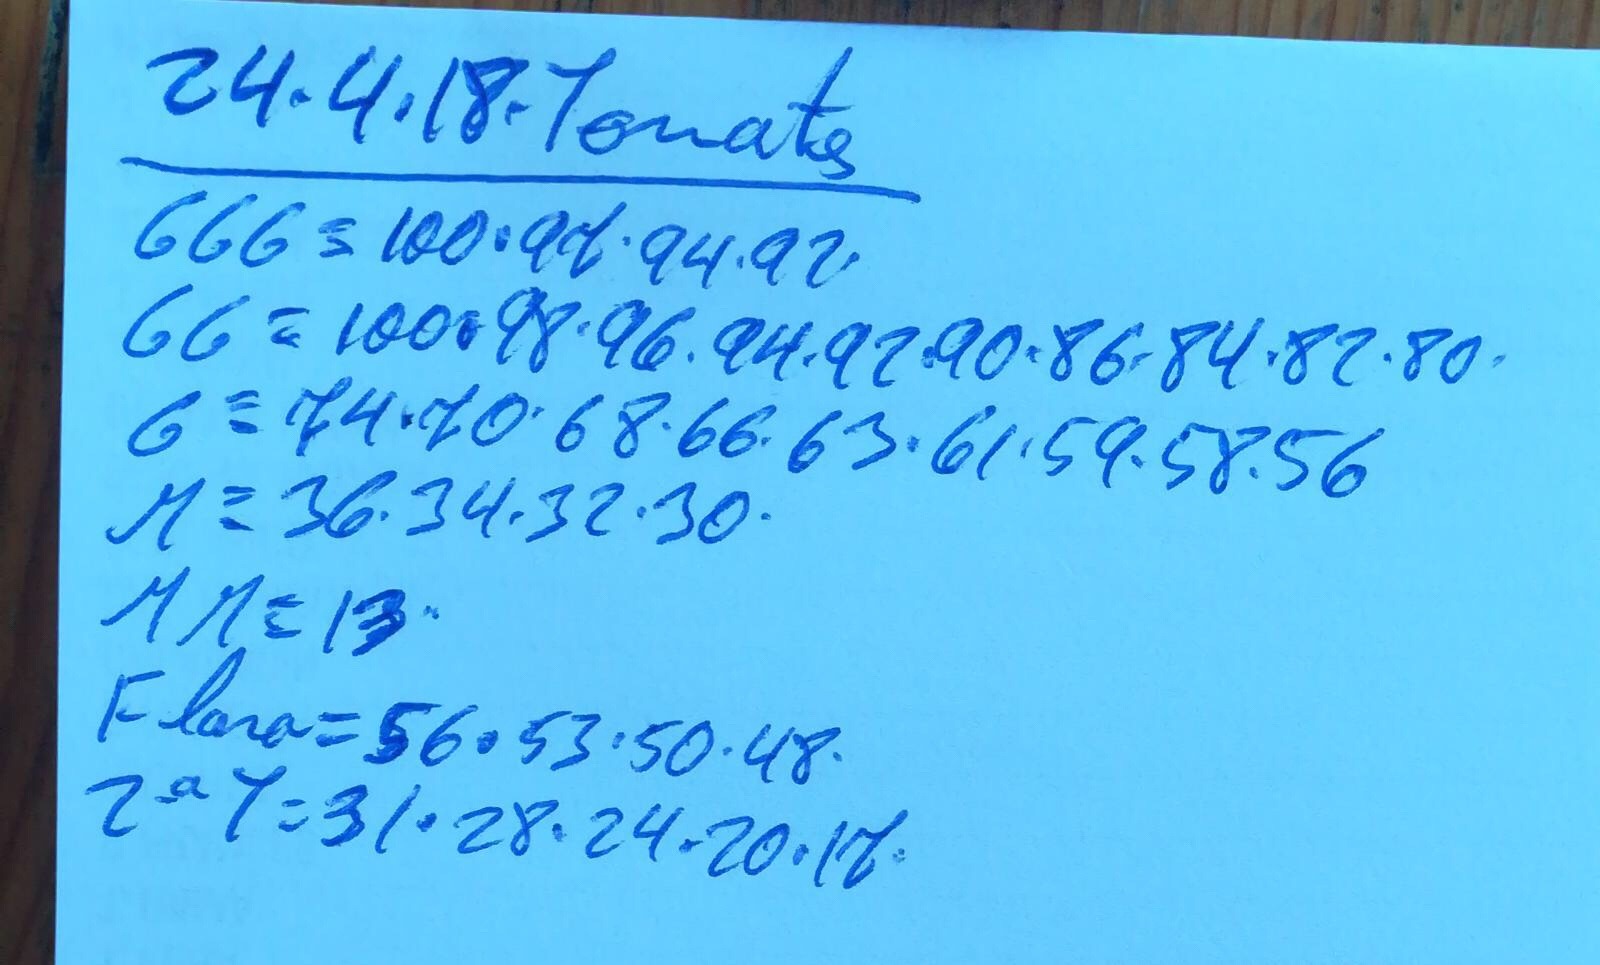 24.4.18. Tomates
GGG = 100.97.94.92.
GG = 100.98.96.94.92.90.86.84.82.80.
G = 74.70.68.66.63.61.59.58.56
M = 36.34.32.30.
MM = 13.
F lora = 56.53.50.48.
2ª T = 31.28.24.20.17.